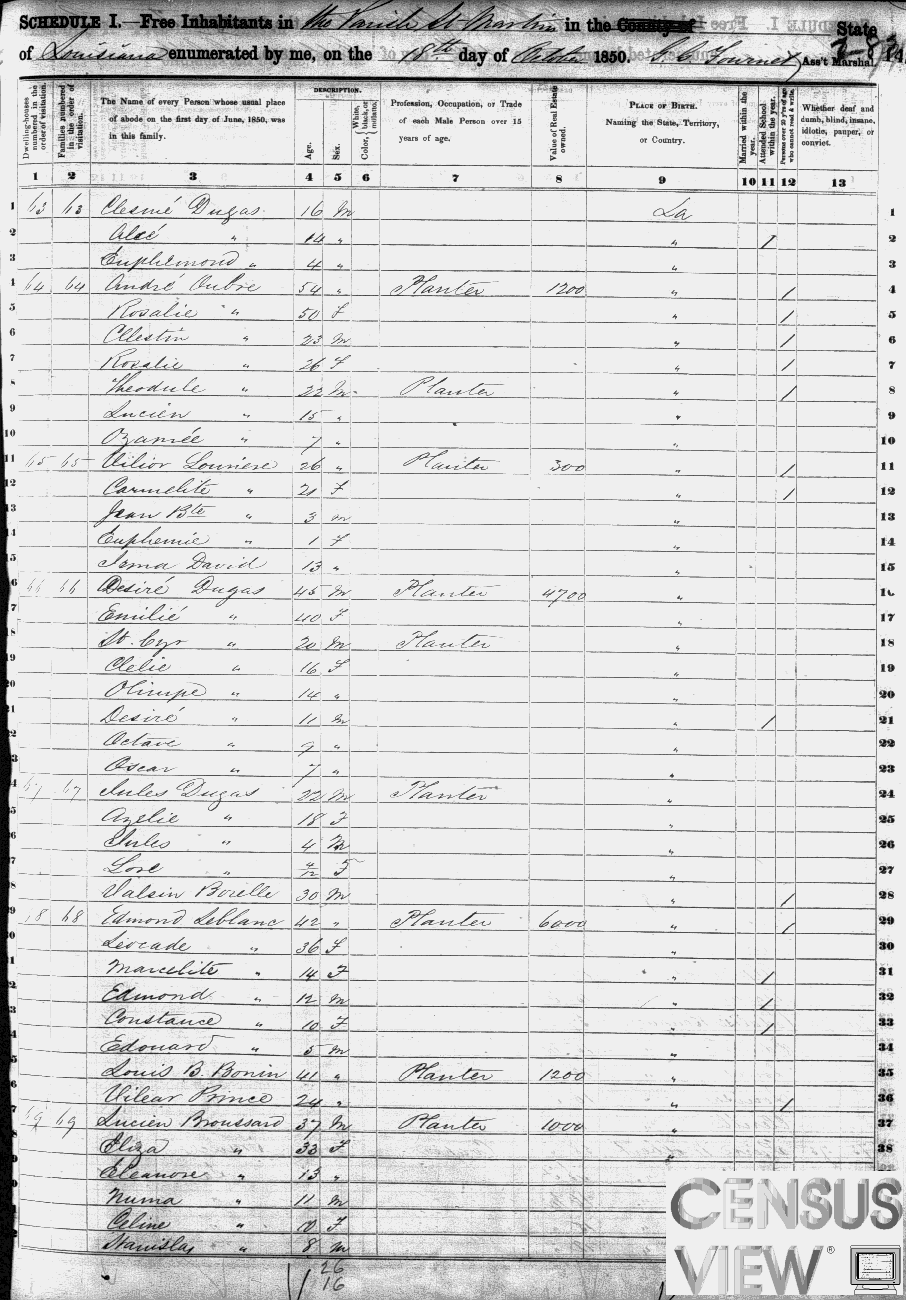 SCHEDULE I.—Free Inhabitants in the Parish St Martin in the County of State
of Louisiana enumerated by me, on the 18th day of October 1850. Fournet Ass't Marshal.
DESCRIPTION.
Dwelling-houses numbered in the order of visitation.
Families numbered in the order of visitation.
The Name of every Person whose usual place of abode on the first day of June, 1850, was in this family.
Age.
Sex.
Color, White, black, or mulatto.
Profession, Occupation, or Trade of each Male Person over 15 years of age.
Value of Real Estate owned.
PLACE OF BIRTH. Naming the State, Territory, or Country.
Married within the year.
Attended School within the year.
Persons over 20 y'rs of age who cannot read & write.
Whether deaf and dumb, blind, insane, idiotic, pauper, or convict.
1 2 3 4 5 6 7 8 9 10 11 12 13
1 63 63 Clesmé Dugas 16 M La 1
2 Alcé " 14 " " / 2
3 Euphémond " 4 " " 3
4 64 64 André Aubre 54 " Planter 1200 " / 4
5 Rosalie " 50 F " / 5
6 Célestin " 23 M " / 6
7 Rosalie " 26 F " / 7
8 Theodule " 22 M Planter " / 8
9 Lucien " 15 " " 9
10 " 7 " " 10
11 65 65 26 " Planter 300 " / 11
12 Carmelite " 21 F " / 12
13 Jean Bte " 3 m " 13
14 Euphemie " 1 F " 14
15 Irma David 13 " " 15
16 66 66 Desiré Dugas 45 M Planter 4700 " 16
17 Emilié " 40 F " 17
18 St. Cyr " 20 M Planter " 18
19 Clelie " 16 F " 19
20 Olimpe " 14 " " 20
21 Desiré " 11 m " / 21
22 Octave " 9 " " 22
23 Oscar " 7 " " 23
24 67 67 Jules Dugas 22 M Planter " 24
25 Azelie " 18 F " 25
26 Jules " 4 M " 26
27 Lose " 4/12 F " 27
28 Valsin Borelle 30 M " / 28
29 68 68 Edmond Leblanc 42 " Planter 6000 " / 29
30 Léocade " 36 F " 30
31 Marcelite " 14 F " / 31
32 Edmond " 12 m " / 32
33 Constance " 10 F " / 33
34 Edouard " 5 m " 34
35 Louis B. Bonin 41 " Planter 1200 " 35
36 Vilear Prince 24 " " / 36
37 69 69 Lucien Broussard 37 M Planter 1000 " 37
38 Eliza " 33 F " 38
Eleanore " 13 "
Numa " 11 m
Celine " 10 F
Stanislas " 8 m
26
16
CENSUS
VIEW®